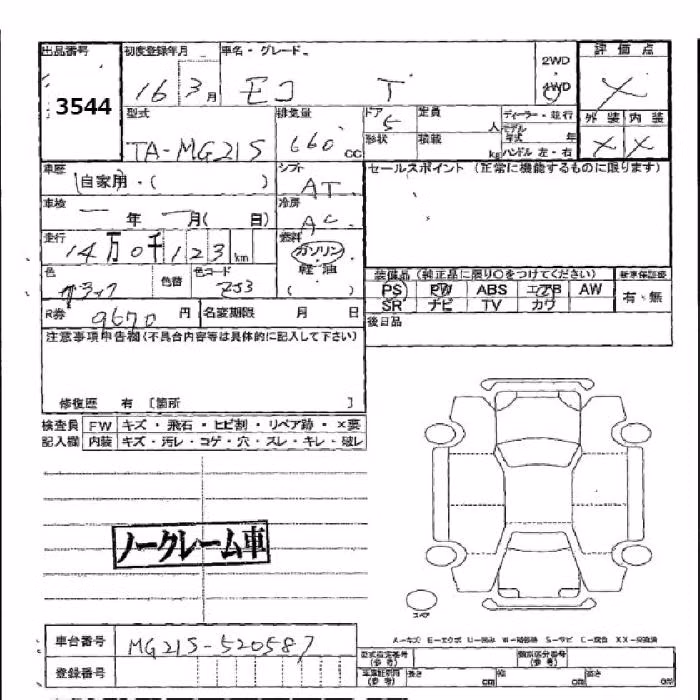 出品番号 初度登録年月 車名・グレード 評価点
3544 16 3月 モコ T 2WD 4WD X
型式 排気量 ドア 定員 ディーラー・並行 外装 内装
TA-MG21S 660 cc 5 人 モデル年式 年 X X
形状 積載 kg ハンドル 左・右
車歴 自家用・( ) シフト AT セールスポイント (正常に機能するものに限ります)
車検 一年 一月( 日) 冷房 AC
走行 14万0千123km 燃料 ガソリン 軽・油 ( )
色 ブラック 色替 色コード ZJ3 装備品 (純正品に限り○をつけてください) 新車保証書
PS PW ABS エアB AW 有・無
SR ナビ TV カワ
R券 9670円 名変期限 月 日 後日品
注意事項申告欄(不具合内容等は具体的に記入して下さい)
修復歴 有 [箇所 ]
検査員 FW キズ・飛石・ヒビ割・リペア跡・×要
記入欄 内装 キズ・汚レ・コゲ・穴・スレ・キレ・破レ
ノークレーム車
スペア
A-キズ E-エクボ U-凹み W-補修跡 S-サビ C-腐食 XX-交換済
車台番号 MG21S-520587 型式指定番号(参考) 類別区分番号(参考)
登録番号 長さ cm 幅 cm 高さ cm